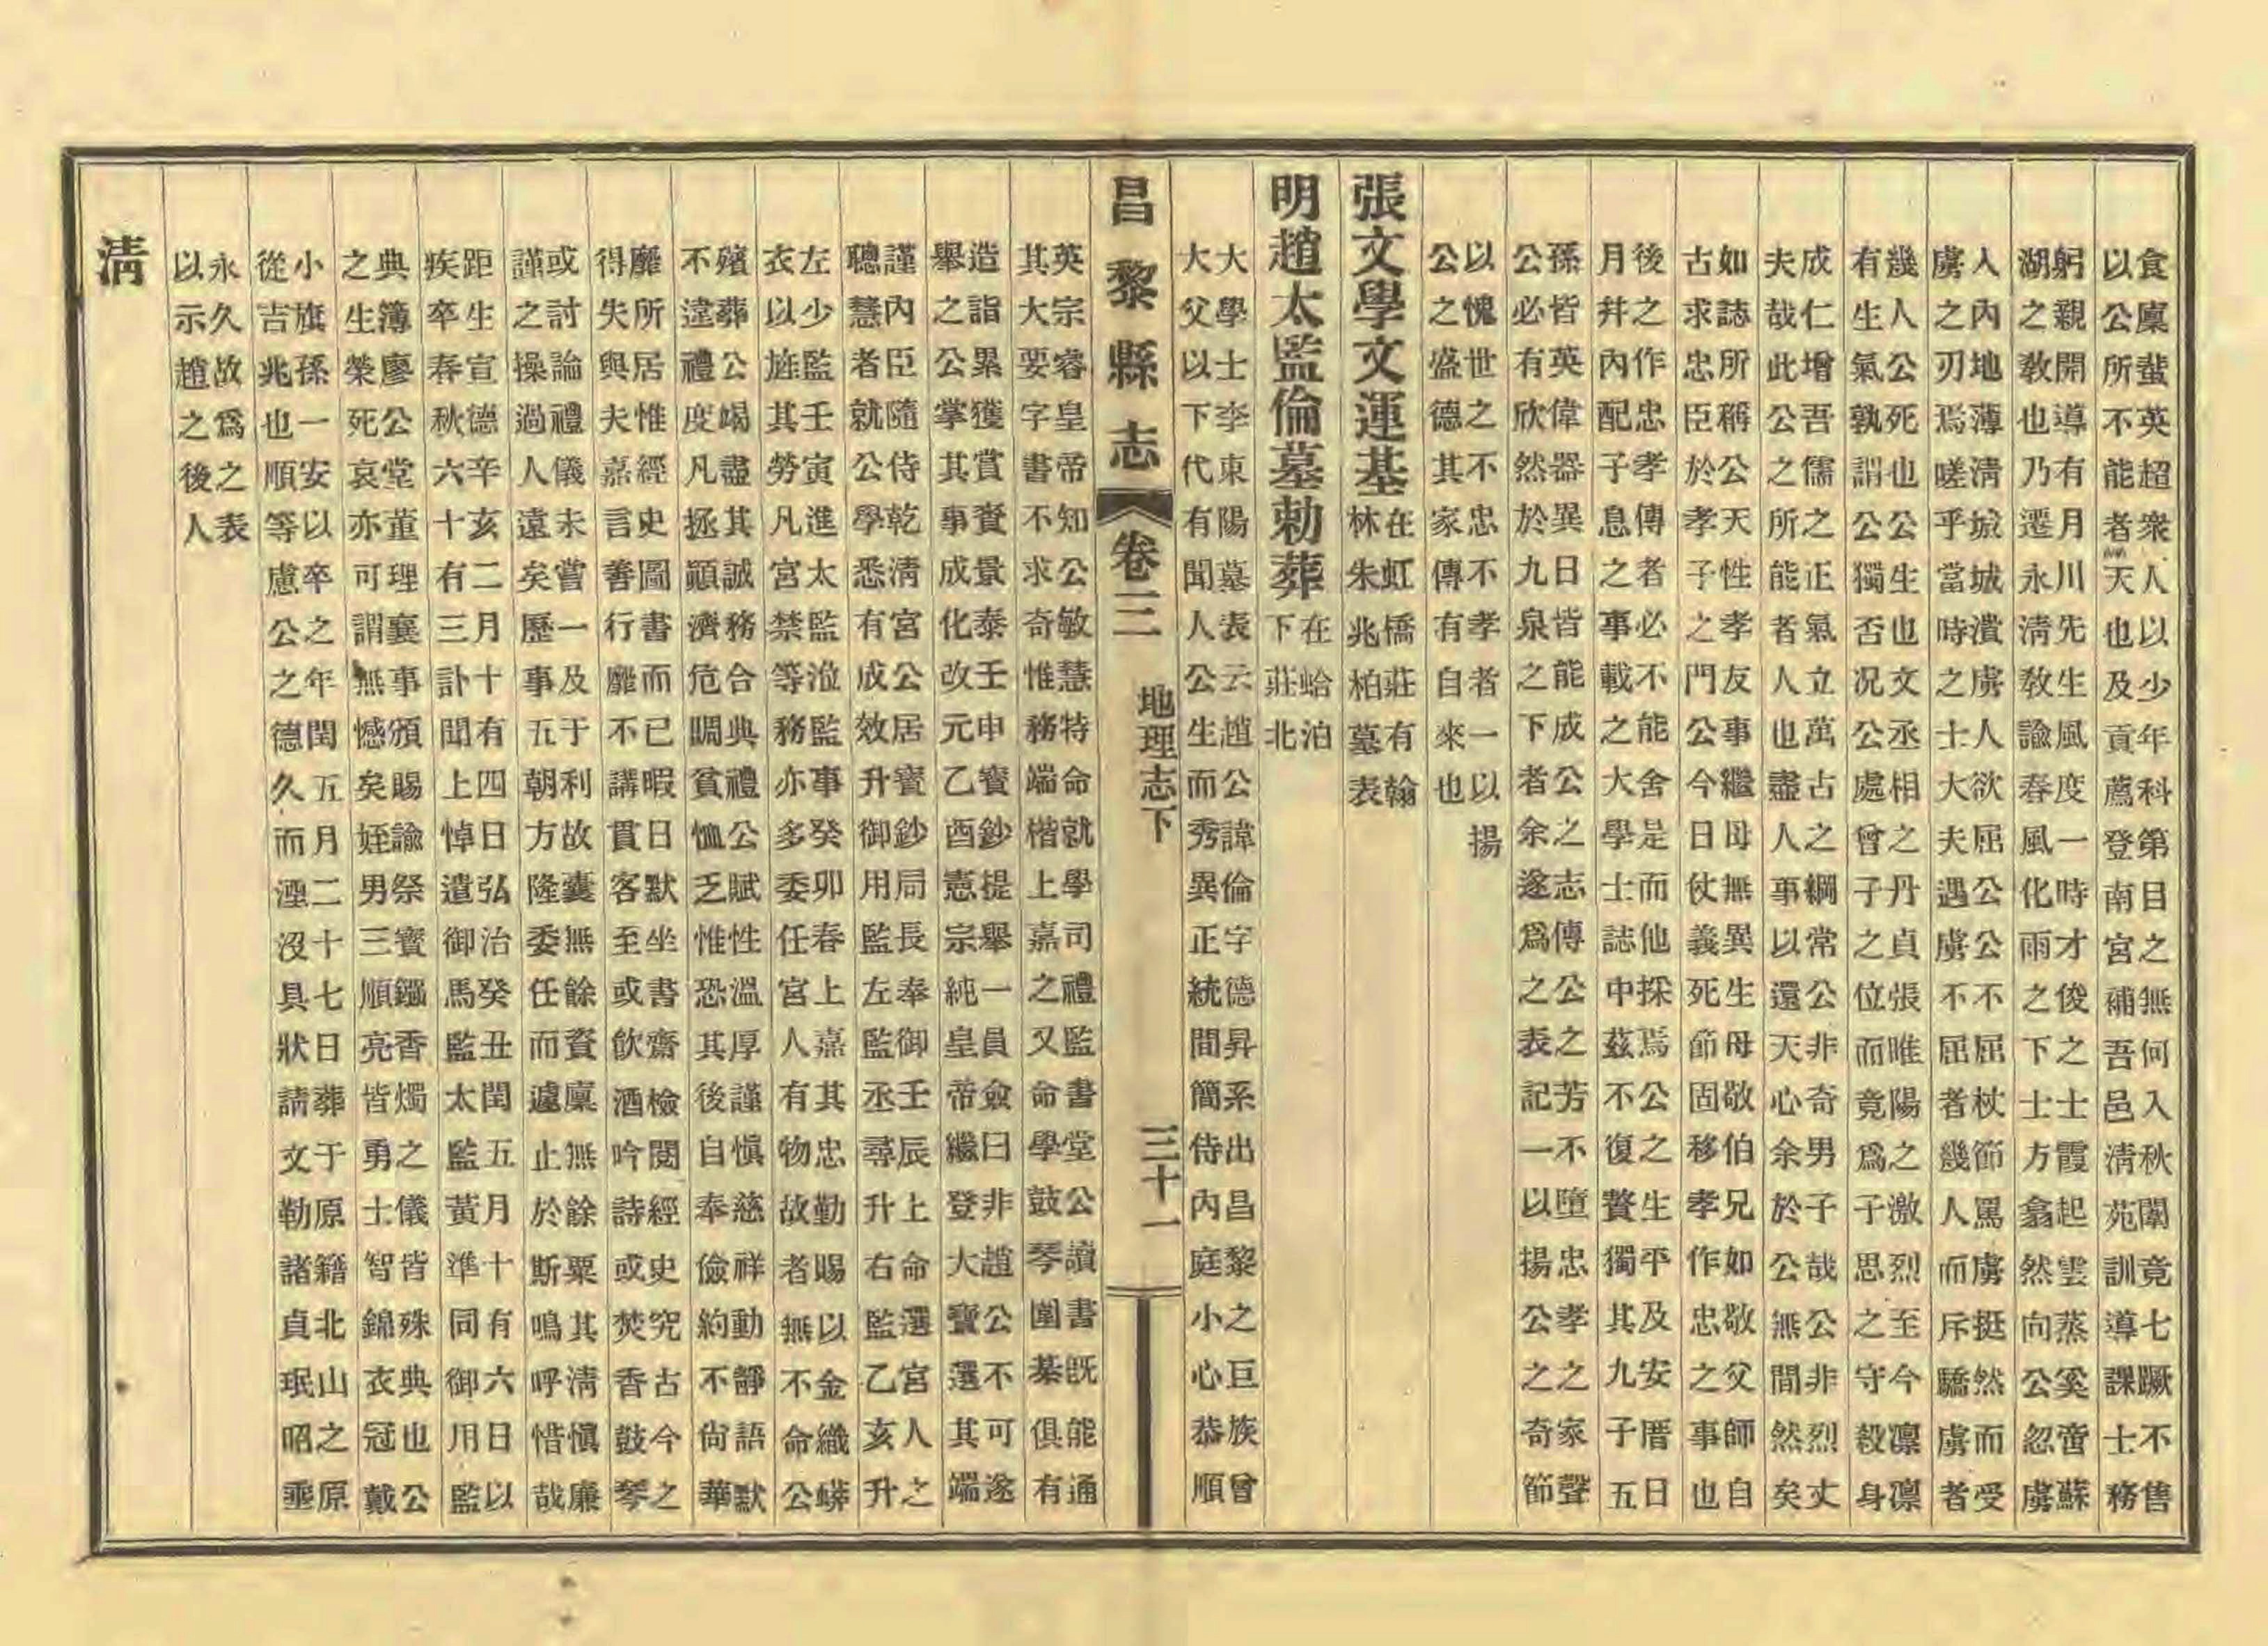 食廩蜚英超衆人以少年科第目之無何入秋闈竟七蹶不售
以公所不能者天也及貢薦登南宮補吾邑清苑訓導課士務
躬親開導有月川先生風度一時才俊之士霞起雲蒸奚啻蘇
湖之教也乃遷永清教諭春風化雨之下士方翕然向公忽虜
人內地薄清城城潰虜人欲屈公公不屈杖節罵虜挺然而受
虜之刃焉嗟乎當時之士大夫遇虜不屈者幾人而斥驕虜者
幾人公死也公生也文丞相之丹貞張睢陽之激烈至今凜凜
有生氣孰謂公獨否况公處曾子之位而竟爲子思之守殺身
成仁增吾儒之正氣立萬古之綱常公非奇男子哉公非烈丈
夫哉此公之所能者人也盡人事以還天心余於公無間然矣
如誌所稱公天性孝友事繼母無異生母敬伯兄如敬父師自
古求忠臣於孝子之門公今日仗義死節固移孝作忠之事也
後之作忠孝傳者必不能舍是而他採焉公之生平及安厝日
月幷內配子息之事載之大學士誌中茲不復贅獨其九子五
孫皆英偉器異日皆能成公之志傳公之芳不墮忠孝之家聲
公必有欣然於九泉之下者余遂爲之表記一以揚公之奇節
以愧世之不忠不孝者一以揚
公之盛德其家傳有自來也
張文學文運基 在虹橋莊有翰
林朱兆柏墓表
明趙太監倫墓勅葬 在蛤泊
下莊北
大學士李東陽墓表云趙公諱倫字德昇系出昌黎之巨族曾
大父以下代有聞人公生而秀異正統間簡侍內庭小心恭順
昌黎縣志 卷三 地理志下 三十一
英宗睿皇帝知公敏慧特命就學司禮監書堂公讀書旣能通
其大要字書不求奇惟務端楷上嘉之又命學鼓琴圍棊俱有
造詣累獲賞賚景泰壬申寶鈔提舉一員僉曰非趙公不可遂
舉之公掌其事成化改元乙酉憲宗純皇帝繼登大寶選其端
謹內臣隨侍乾清宮公居寶鈔局長奉御壬辰上命選宮人之
聰慧者就公學悉有成效升御用監左監丞尋升右監乙亥升
左少監壬寅進太監涖監事癸卯春上嘉其忠勤賜以金織蟒
衣以旌其勞凡宮禁等務亦多委任宮人有物故者無不命公
殯葬公竭盡其誠務合典禮公賦性溫厚謹愼慈祥動靜語默
不違禮度凡拯顚濟危賙貧恤乏惟恐其後自奉儉約不尙華
靡所居惟經史圖書而已暇日默坐書齋檢閱經史究古今之
得失與夫嘉言善行靡不講貫客至或飮酒吟詩或焚香鼓琴
或討論禮儀未嘗一及于利故囊無餘資廩無餘粟其清愼廉
謹之操過人遠矣歷事五朝方隆委任而遽止於斯鳴呼惜哉
距生宣德辛亥二月十有四日弘治癸丑閏五月十有六日以
疾卒春秋六十有三訃聞上悼遣御馬監太監黃準同御用監
典簿廖公堂董理襄事頒賜諭祭寶鏹香燭之儀皆殊典也公
之生榮死哀亦可謂無憾矣姪男三順亮皆勇士智錦衣冠戴
小旗孫一安以卒之年閏五月二十七日葬于原籍北山之原
從吉兆也順等慮公之德久而湮沒具狀請文勒諸貞珉昭垂
永久故爲之表
以示趙之後人
清